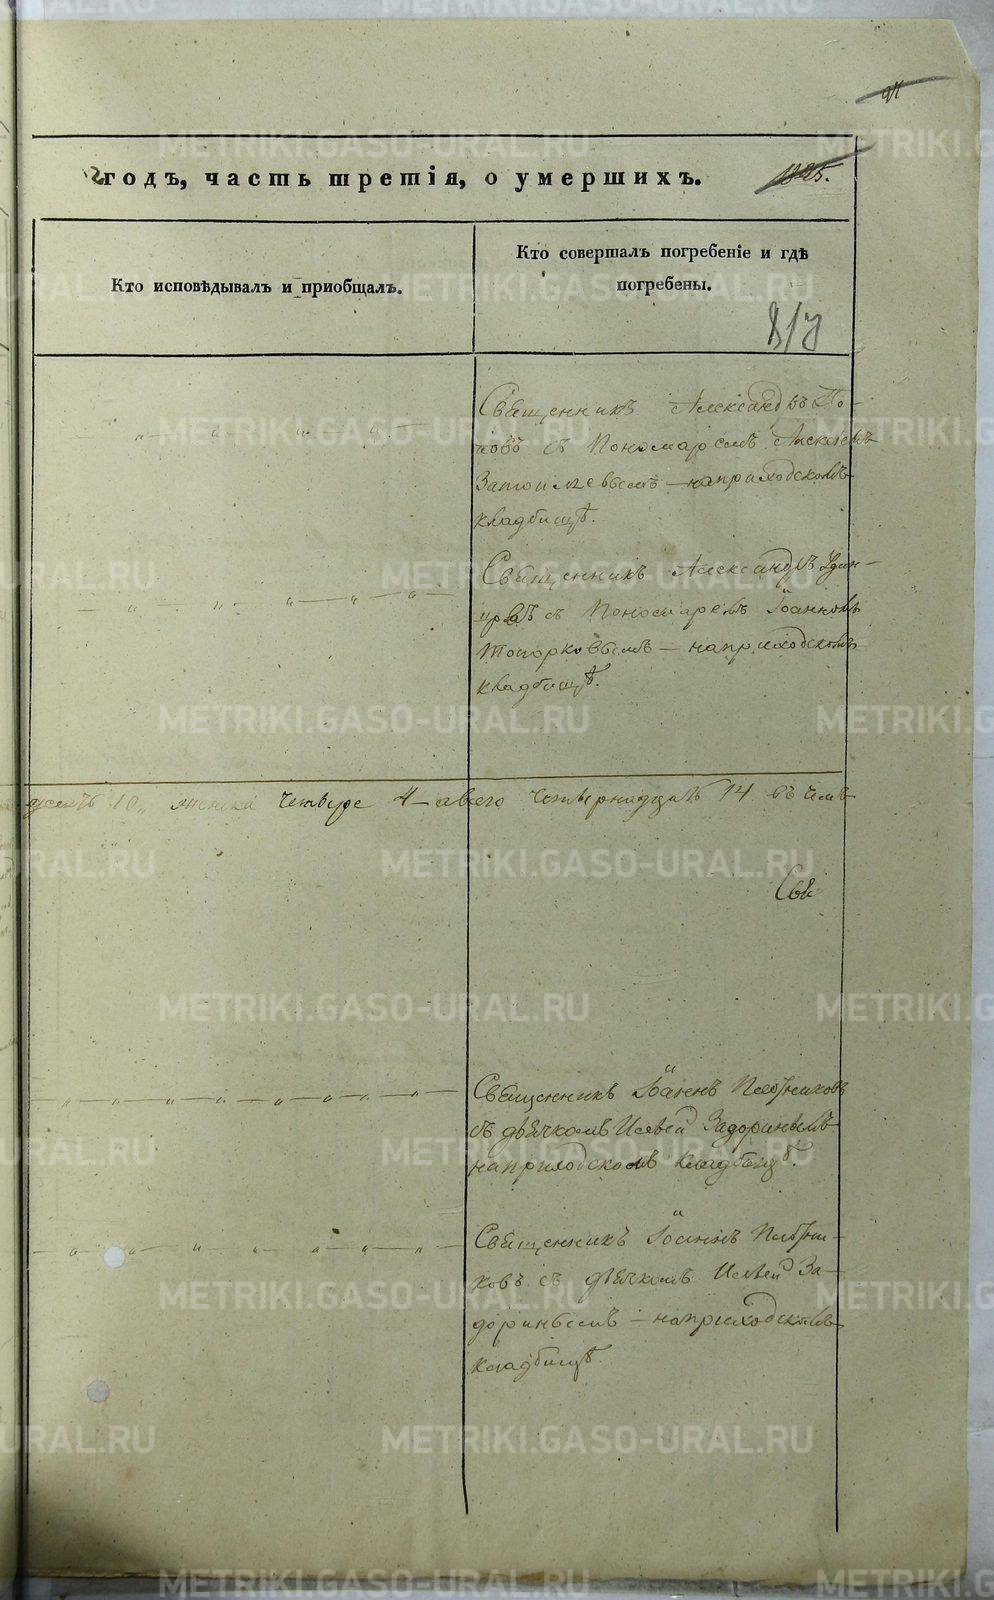 годъ, часть третія, о умершихъ.
1825.
Кто исповѣдывалъ и пріобщалъ.
Кто совершалъ погребеніе и гдѣ
погребены.
Священникъ Александръ По-
повъ съ Пономаремъ Алексѣемъ
на приходскомъ
кладбищѣ.
Священникъ Александръ
съ Пономаремъ Іоанномъ
Топорковымъ – на приходскомъ
кладбищѣ.
10, женска четыре 4 – а всего четырнадцать 14 въ чемъ
Свя
Священникъ Іоаннъ Плотниковъ
съ дьячкомъ Исаею Задоринымъ
на приходскомъ кладбищѣ.
Священникъ Іоаннъ Плотни-
ковъ съ дьячкомъ Исаею За-
доринымъ – на приходскомъ
кладбищѣ.
METRIKI.GASO-URAL.RU